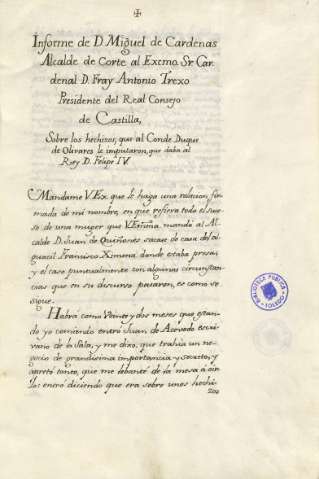 Informe de D. Miguel de Cardenas
Alcalde de Corte al Exc.mo Sr. Car-
denal D. Fray Antonio Trexo
Presidente del Real Consejo
de Castilla,
Sobre los hechizos, que al Conde Duque
de Olivares le imputaron, que daba al
Rey D. Felipe IV.
Mándame V.Ex. que le haga una relacion fir-
mada de mi nombre, en que refiera todo el suce-
so de una muger que V.Em.ma mandó al Al-
calde D. Juan de Quiñones sacase de casa del al-
guacil Francisco Ximena donde estaba presa,
y el caso puntualmente con algunas circunstan-
cias que en su discurso pasaron, es como se
sigue.
Habrá como veinte y dos meses que estan-
do yo comiendo entró Juan de Acevedo escri-
vano de la Sala, y me dixo, que trahia un ne-
gocio de grandisima importancia y secreto, y
apretó tanto, que me lebanté de la mesa á oir-
los entró diciendo que era sobre unos hechi-
zos
BIBLIOTECA PUBLICA
TOLEDO